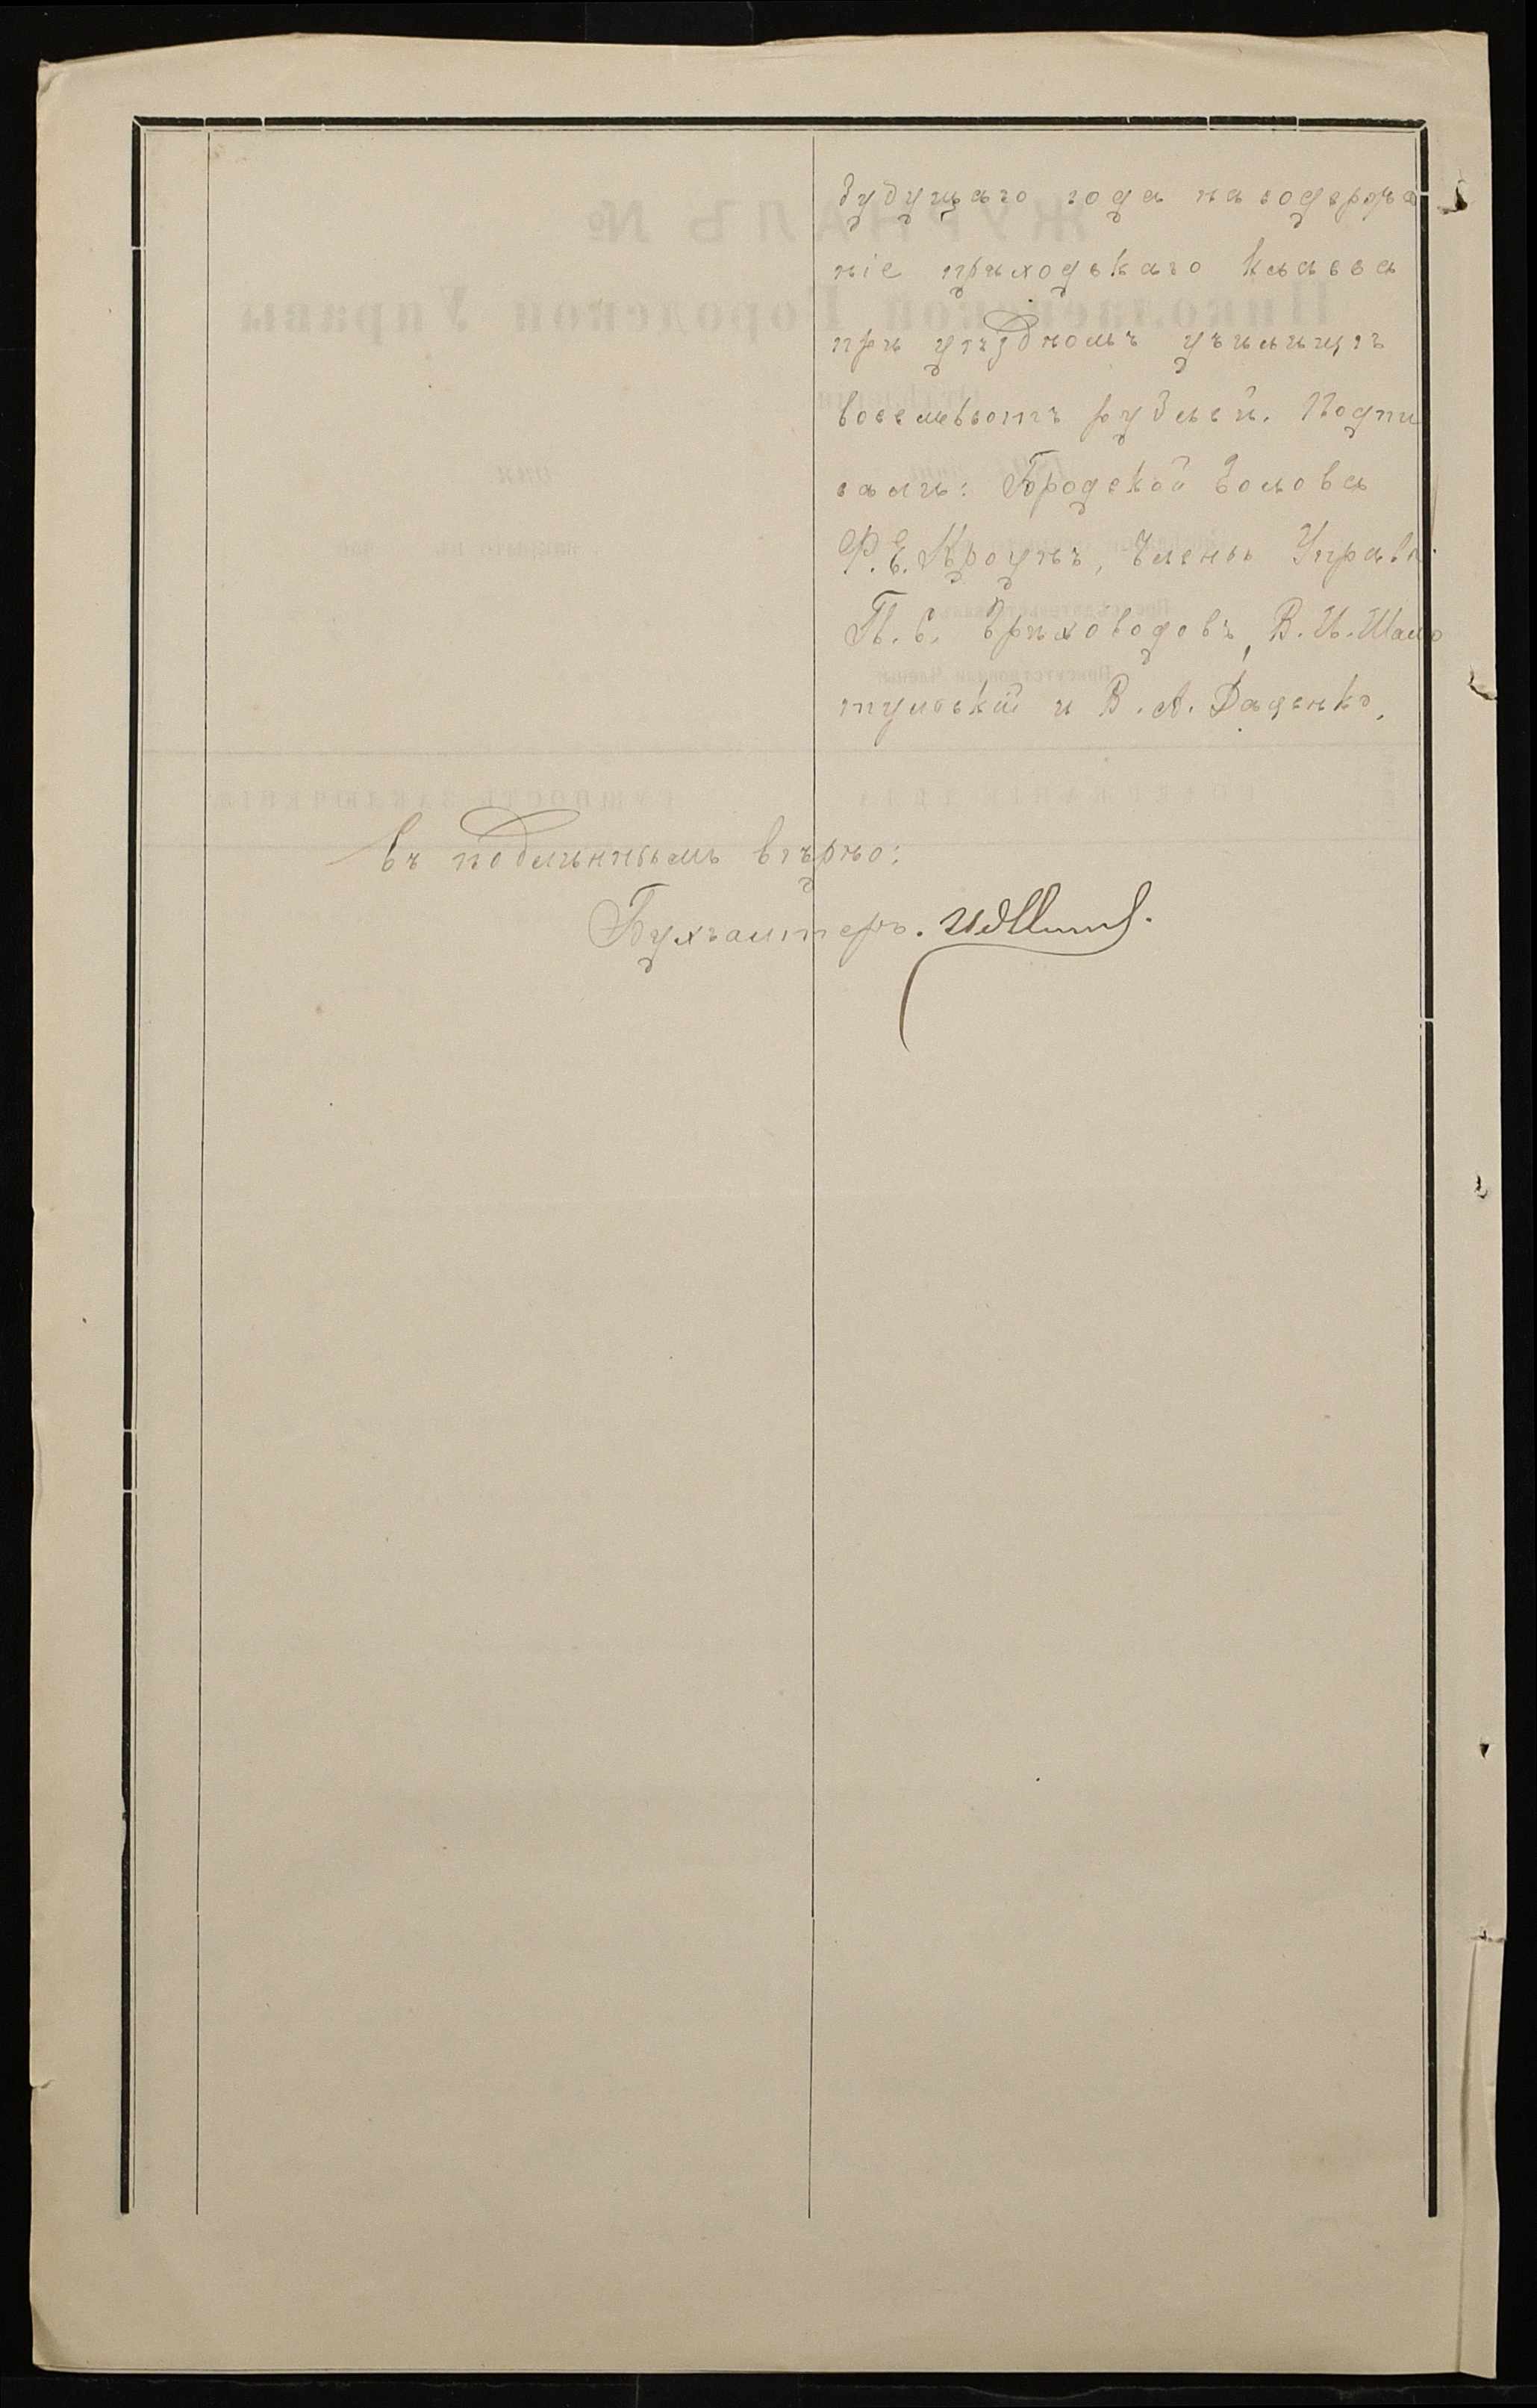 будущаго года на содержа
ніе приходскаго класса
при уѣздномъ училищѣ
восемьсотъ рублей. Подпи
сали: Городской Голова
Ф. Е. Кроунъ, Члены Управы
П. С. Трыховодовъ, В. И. Шамо
тульскій и В. А. Даценко.
Съ подлиннымъ вѣрно:
Бухгалтеръ.